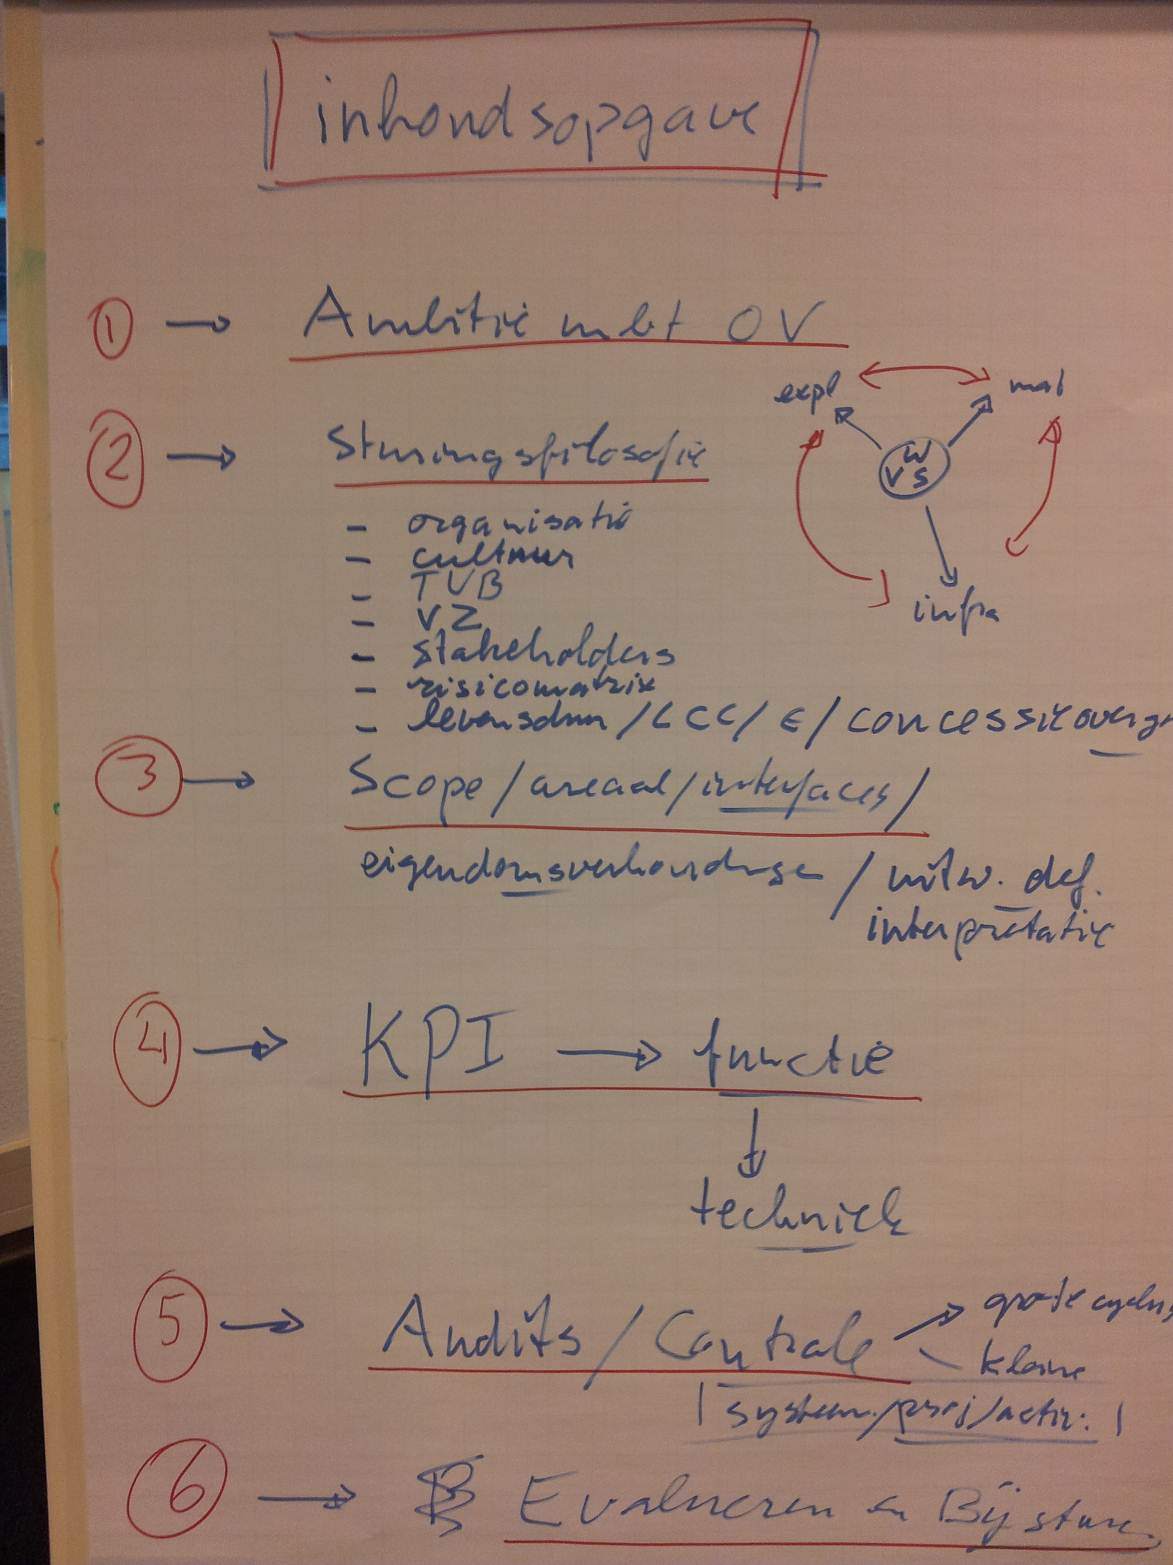 inhoudsopgave
1 → Ambitie mbt OV
expl
mat
VWS
infra
2 → Sturingsfilosofie
- organisatie
- cultuur
- TVB
- VZ
- stakeholders
- risicomatrix
- levensduur / LCC / € / concessieoverg
3 → Scope / areaal / interfaces /
eigendomsverhoudingen / uitw. def.
interpretatie
4 → KPI → functie
↓
techniek
5 → Audits / Controle → grote cyclus
kleine
| system. / proj / activ. |
6 → Evalueren en Bijsturen